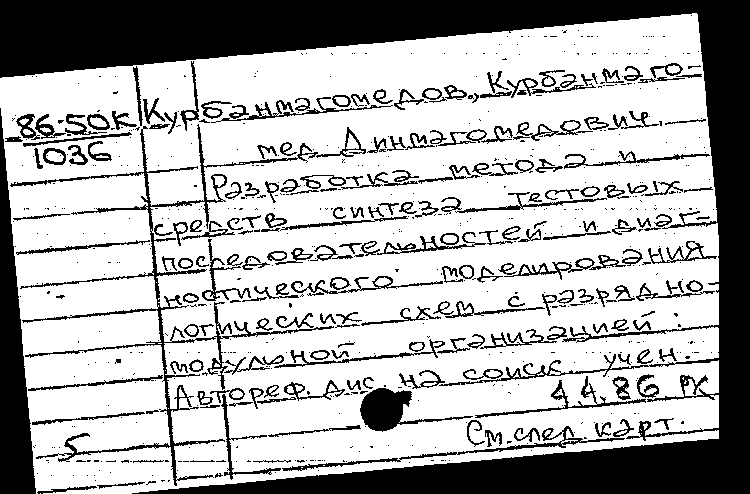 86-50К Курбанмагомедов, Курбанмаго-
1036 мед Динмагомедович.
Разработка метода и
средств синтеза тестовых
последовательностей и диаг-
ностического моделирования
логических схем с разрядно-
модульной организацией:
Автореф. дис. на соиск. учен.
4.4.86 РХ
5 См. след. карт.